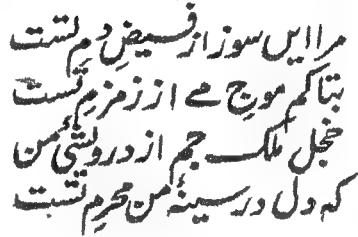 مرا ایں سوز از فیضِ دمِ تست
بتاکم موجِ مے از زمزمِ تست
خجل ملکِ جم از درویشیٔ من
که دل در سینهٔ من محرمِ تست